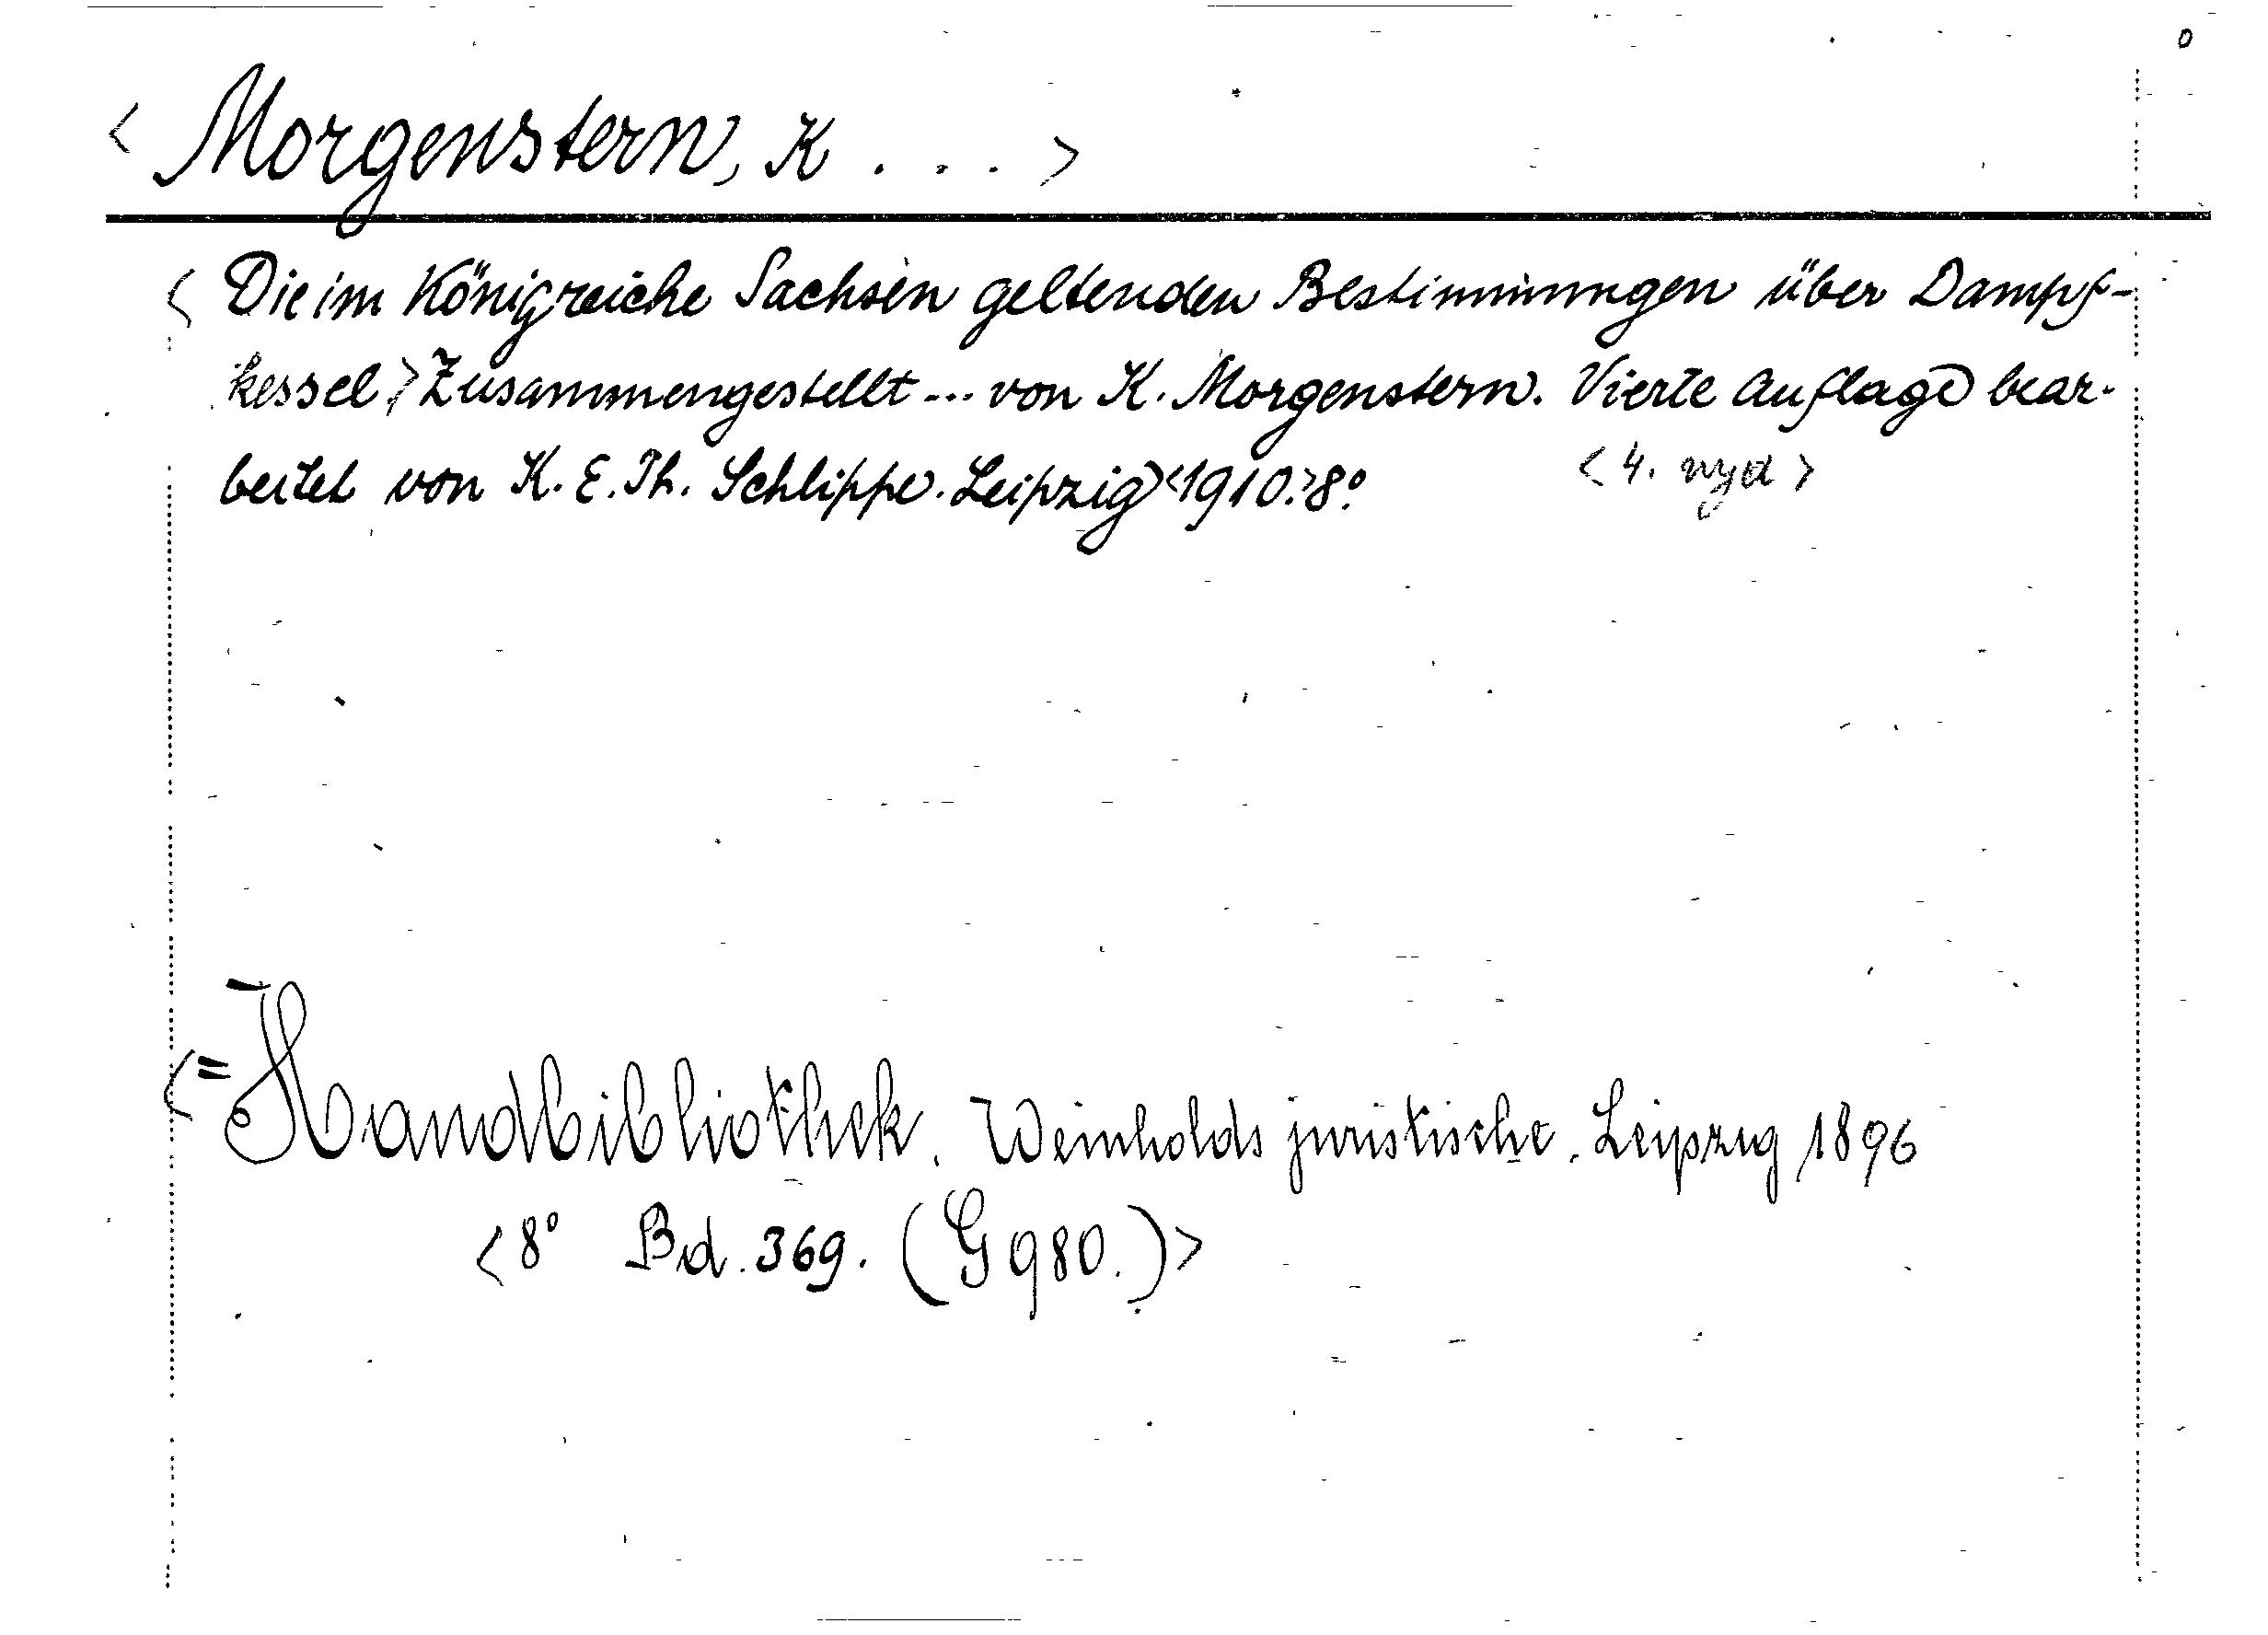 0
< Morgenstern, K . . . >
< Die im Königreiche Sachsen geltenden Bestimmungen über Dampf-
kessel > Zusammengestellt ... von K. Morgenstern. Vierte Auflage bear-
beitet von K. E. Th. Schlippe. Leipzig <1910.> 8º.
< 4. wyd >
<= Handbibliothek. Weinholds juristische. Leipzig 1896
<8º Bd. 369. (G 980.)>